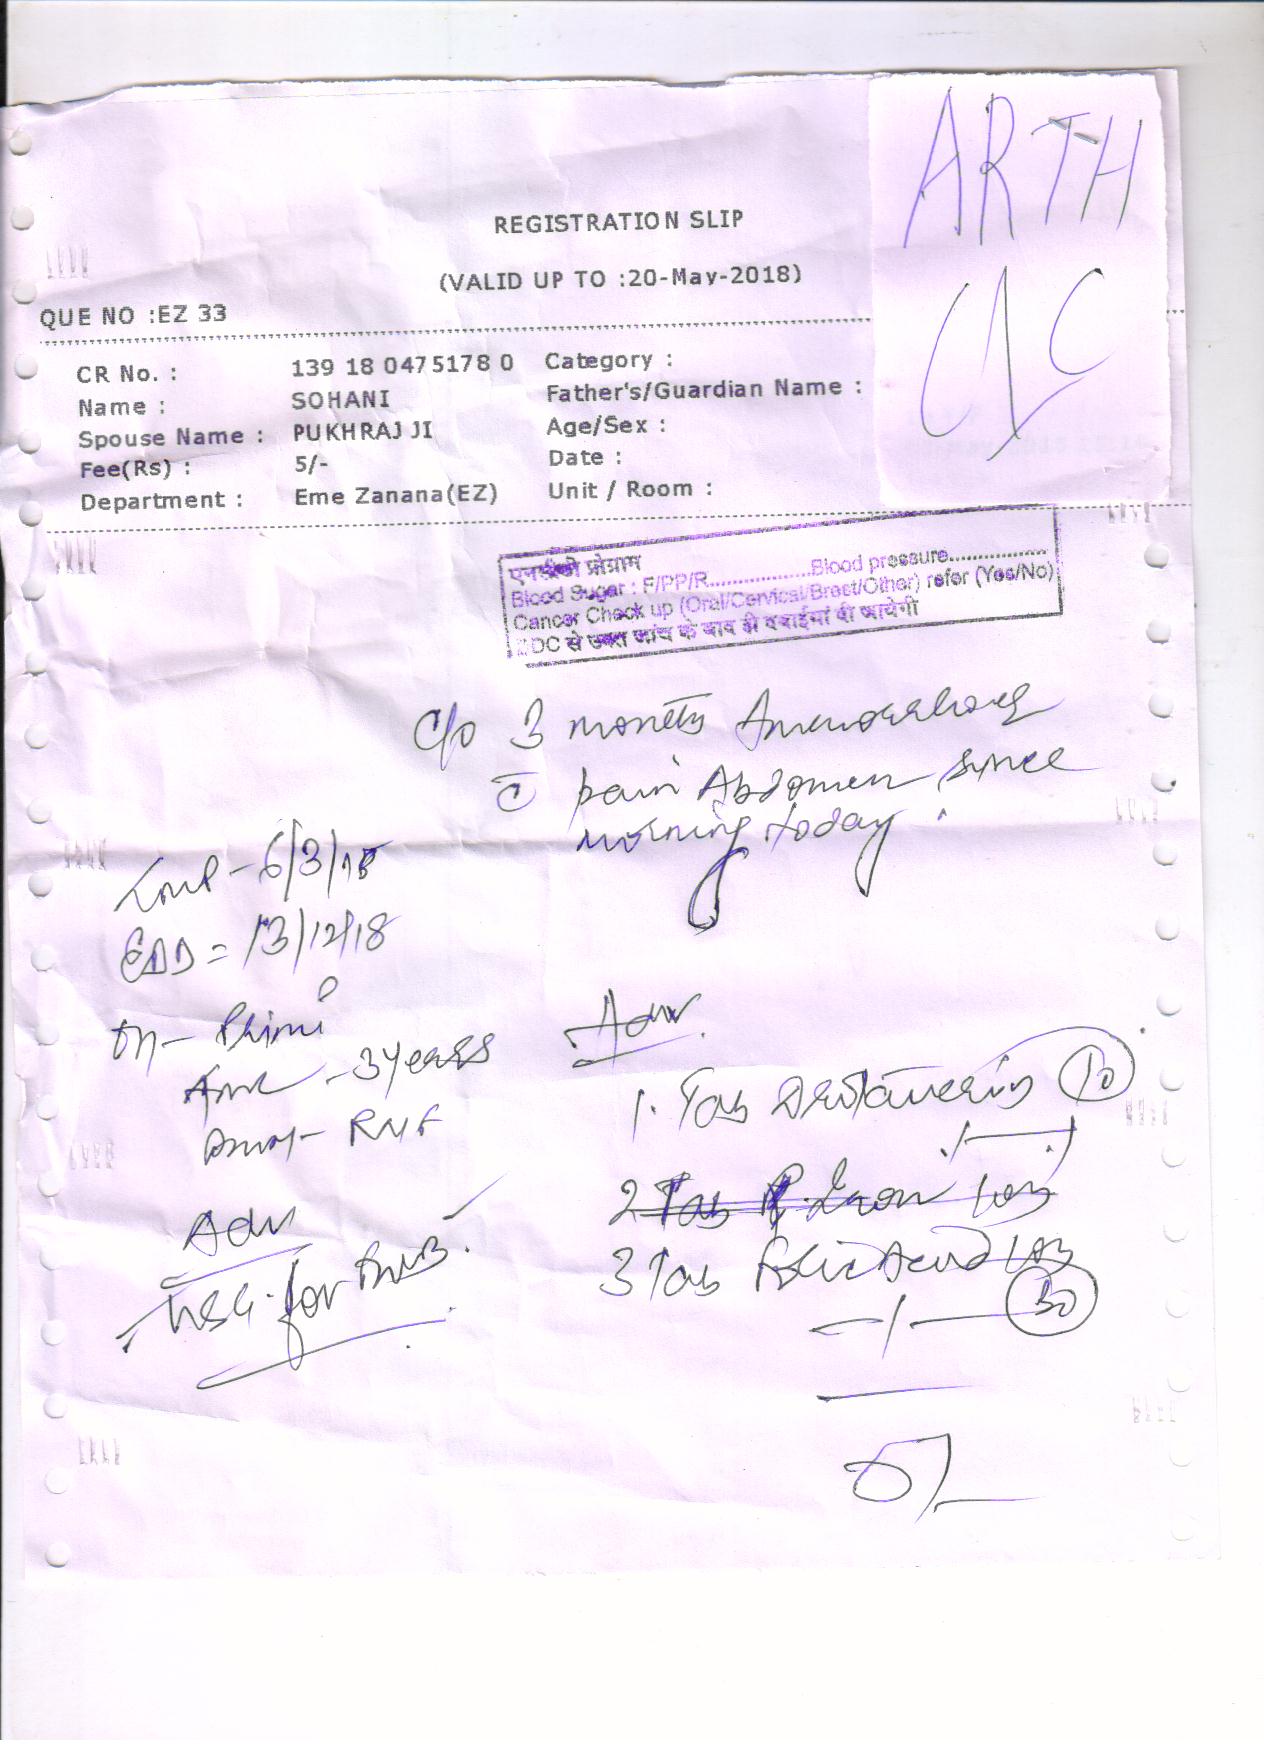 ARTH
CLC
REGISTRATION SLIP
(VALID UP TO :20-May-2018)
QUE NO :EZ 33
CR No. : 139 18 0475178 0 Category :
Name : SOHANI Father's/Guardian Name :
Spouse Name : PUKHRAJ JI Age/Sex :
Fee(Rs) : 5/- Date :
Department : Eme Zanana(EZ) Unit / Room :
एनसीडी प्रोग्राम
Blood Sugar : F/PP/R..................Blood pressure.................
Cancer Check up (Oral/Cervical/Brest/Other) refer (Yes/No)
NDC से उक्त जांच के बाद ही दवाईयां दी जायेगी
C/o 3 months Amenorrhoea
c̄ pain Abdomen since
morning today.
LMP - 6/3/18
EDD = 13/12/18
OH - Primi
AML - 3 years
RMF
Adv
USG. for FWB.
Adv.
1. Tab 10
2 Tab Iron
3 Tab Folic Acid
30